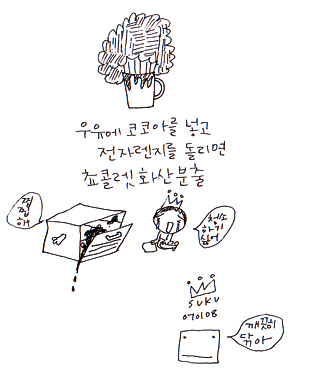 우유에 코코아를 넣고
전자렌지를 돌리면
쵸콜렛 화산분출
찝
찝
해
청소
하기
싫어
SUKU
070108
깨끗히
닦아